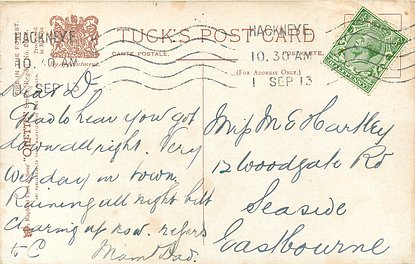 TUCK'S POST CARD
CARTE POSTALE.
POSTKARTE.
(FOR ADDRESS ONLY.)
HACKNEY
10. 0 AM
SEP 13
HACKNEY.
10.30 AM
1 SEP 13
Dear D,
Glad to hear you got
down all right. Very
Wet day in town.
Raining all night but
Clearing up now.
to C
Mom & Dad.
Miss M E Hartley
12 Woodgate Rd
Seaside
Eastbourne